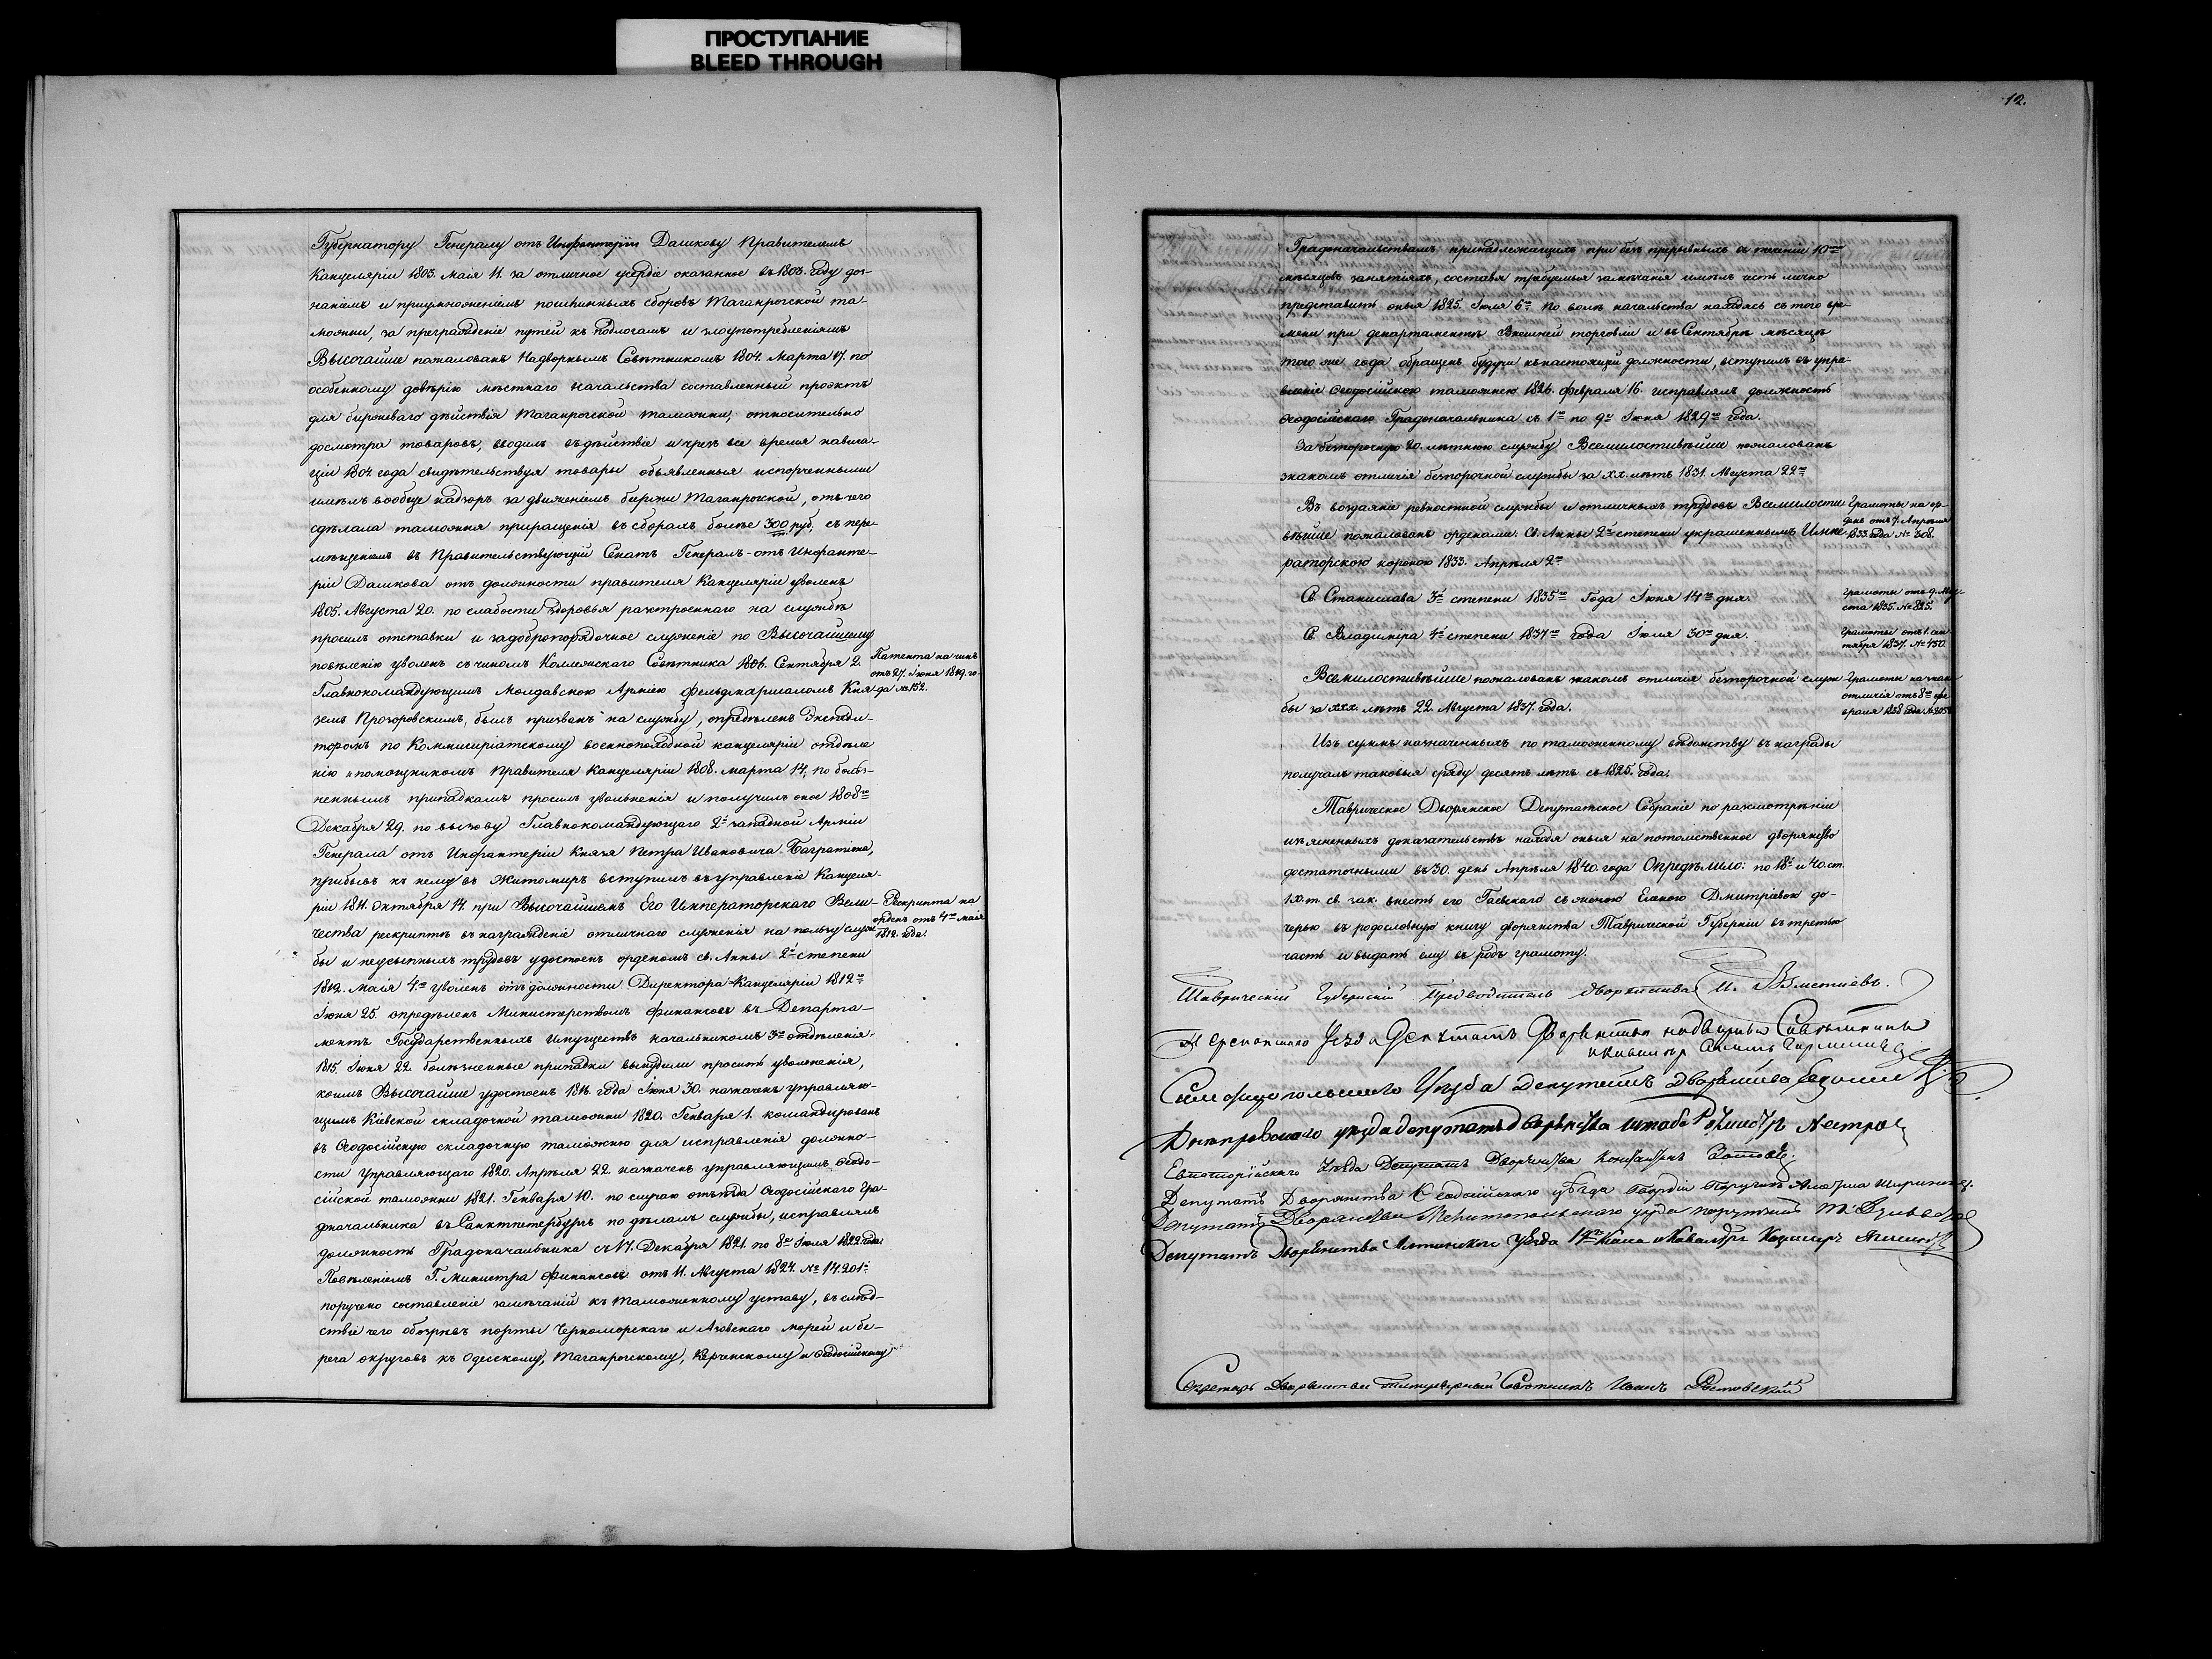 ПРОСТУПАНИЕ
BLEED THROUGH
Губернатору Генералу отъ Инфантеріи Дашкову Правителемъ
Канцеляріи 1803. Маія 11. за отличное усердіе оказанное въ 1803. году доз-
наніемъ и приумноженіемъ пошлинныхъ сборовъ Таганрогской та-
можни, за прегражденіе путей къ подлогамъ и злоупотребленіямъ
Высочайше пожалованъ Надворнымъ Совѣтникомъ 1804. Марта 17. по
особенному довѣрію мѣстнаго начальства составленный проэктъ
для биржеваго дѣйствія Таганрогской таможни, относительно
досмотра товаровъ, вводилъ въ дѣйствіе и чрезъ все время навига-
ціи 1804. года свидѣтельствуя товары объявленныя испорченными
имѣлъ вообще надзоръ за движеніемъ биржи Таганрогской, отъ чего
сдѣлала таможня приращенія въ сборахъ болѣе 300 руб. съ пере-
мѣщеніемъ въ Правительствующій Сенатъ Генералъ-отъ Инфанте-
ріи Дашкова отъ должности правителя Канцеляріи уволенъ
1805. Августа 20. по слабости здоровья разстроеннаго на службѣ
просилъ отставки и за добропорядочное служеніе по Высочайшему
повѣленію уволенъ съ чиномъ Коллежскаго Совѣтника 1806. Сентября 2.
Патента на чинъ
отъ 27. Іюня 1819. го-
да № 152.
Главнокомандующимъ Молдавскою Арміею фельдмаршаломъ Кня-
земъ Прозоровскимъ, былъ призванъ на службу, опредѣленъ Экспеди-
торомъ по Коммисиріатскому военнопоходной канцеляріи отдѣле
нію и помощникомъ Правителя Канцеляріи 1808. марта 14, по болѣз-
неннымъ припадкамъ просилъ увольненія и получилъ оное 1808го
Декабря 29. по вызову Главнокомандующаго 2й западной Арміи
Генерала отъ Инфантеріи Князя Петра Ивановича Багратіона,
прибывъ къ нему въ Житомиръ вступилъ въ управленіе Канцеля-
ріи 1811. Октября 14. при Высочайшемъ Его Императорскаго Вели-
чества рескриптѣ въ награжденіе отличнаго служенія на пользу служ-
Рескрипта на
орденъ отъ 4го маія
1812. года.
бы и неусыпныхъ трудовъ удостоенъ орденомъ св. Анны 2й степени
1812. Маія 4го уволенъ отъ должности Директора Канцеляріи 1812го
Іюня 25. опредѣленъ Министерствомъ финансовъ въ Департа-
ментъ Государственныхъ Имуществъ начальникомъ 3го отдѣленія.
1815. Іюня 22. болѣзненные припадки вынудили просить увольненія,
коимъ Высочайше удостоенъ 1816. года Іюня 30. назначенъ управляю-
щимъ Кіевской складочной таможни 1820. Генваря 1. командированъ
въ Ѳеодосійскую складочную таможню для исправленія должно-
сти управляющаго 1820. Апрѣля 22. назначенъ управляющимъ Ѳеодо-
сійской таможни 1821. Генваря 10. по случаю отъѣзда Ѳеодосійскаго Гра-
доначальника въ Санктпетербургъ по дѣламъ службы, исправлялъ
должность Градоначальника съ 17. Декабря 1821. по 8е Іюля 1822 года.
Повѣленіемъ Г. Министра финансовъ отъ 11. Августа 1824. № 14.201м
поручено составленіе замѣчаній къ таможенному уставу, въ слѣд-
ствіе чего обозрѣвъ порты Черноморскаго и Азовскаго морей и бе-
рега округовъ къ Одесскому, Таганрогскому, Керченскому и Ѳеодосійскому
12.
Градоначальствамъ принадлежащихъ при безъ прерывныхъ въ теченіи 10ти
мѣсяцовъ занятіяхъ, составя требуемыя замѣчанія имѣлъ честь лично
представить оныя 1825. Іюля 6го По волѣ начальства находясь съ того вре-
мени при департаментѣ Внѣшней торговли и въ Сентябрѣ мѣсяцѣ
того же года обращенъ будучи къ настоящей должности, вступилъ въ упра-
вленіе Ѳеодосійскою таможнею 1826. февраля 16. исправлялъ должность
Ѳеодосійскаго Градоначальника съ 1го по 9е Іюня 1829го года.
За безпорочную 20. лѣтнюю службу Всемилостивѣйше пожалованъ
знакомъ отличія безпорочной службы за XX. лѣтъ 1831. Августа 22го
Въ воздаяніе ревностной службы и отличныхъ трудовъ Всемилости-
вѣйше пожалованъ орденами: Св. Анны 2й степени украшеннымъ Импе-
раторскою короною 1833. Апрѣля 2го
Грамоты на ор-
денъ отъ 7. Апрѣля
1833. года № 308.
Св. Станислава 3й степени 1835го года Іюня 14го дня.
Грамоты отъ 9. Авгу-
ста 1835. № 825.
Св. Владимира 4й степени 1837го года Іюля 30го дня.
Грамоты отъ 1. сен-
тября 1837. № 450.
Всемилостивѣйше пожалованъ знакомъ отличія безпорочной служ-
бы за XXX. лѣтъ 22. Августа 1837. года.
Грамоты на знакъ
отличія отъ 8го фе-
враля 1838 года №
Изъ суммъ назначенныхъ по таможенному вѣдомству въ награды
получалъ таковыя сряду десять лѣтъ съ 1825. года.
Таврическое Дворянское Депутатское Собраніе по разсмотрѣніи
изъясненныхъ доказательствъ находя оныя на потомственное дворянство
достаточными въ 30. день Апрѣля 1840. года Опредѣлило: по 18й и 40. ст.
IX. т. св. зак. внесть его Гаевскаго съ женою Еленою Дмитріевою до-
черью въ родословную книгу дворянства Таврической Губерніи въ третью
часть и выдать ему въ родъ грамоту.
Таврическій Губернскій Предводитель дворянства
Уезда Депутатъ Дворянства надворный Совѣтникъ
и Кавалеръ
Симферопольскаго Уезда Депутатъ Дворянства
Днепровскаго уезда депутатъ дворянства штабъ Ротмистръ
Евпаторійскаго Уезда Депутатъ Дворянства
Депутатъ Дворянства Ѳеодосійскаго уезда Гвардіи Поручикъ
Депутатъ Дворянства Мелитопольскаго уезда поручикъ
Депутатъ Дворянства Ялтинскаго Уезда и Кавалеръ Казимиръ
Секретарь Дворянства Титулярный Совѣтникъ Иванъ